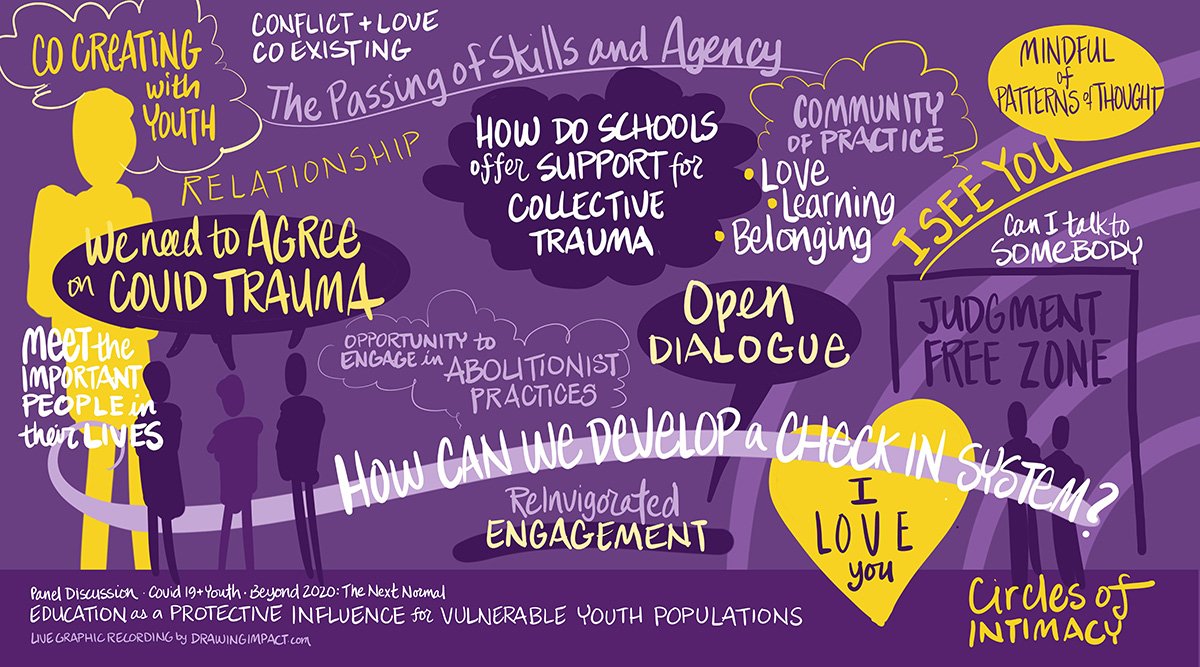 CO CREATING
with
YOUTH
CONFLICT + LOVE
CO EXISTING
The Passing of Skills and Agency
RELATIONSHIP
HOW DO SCHOOLS
offer SUPPORT for
COLLECTIVE
TRAUMA
COMMUNITY
OF PRACTICE
• Love
• Learning
• Belonging
MINDFUL
of
PATTERNS of THOUGHT
I SEE YOU
Can I talk to
SOMEBODY
We need to AGREE
on COVID TRAUMA
MEET the
IMPORTANT
PEOPLE in
their LIVES
OPPORTUNITY to
ENGAGE in ABOLITIONIST
PRACTICES
Open
DIALOGUE
JUDGMENT
FREE ZONE
HOW CAN WE DEVELOP a CHECK IN SYSTEM?
ReInvigorated
ENGAGEMENT
I
LOVE
you
Circles of
INTIMACY
Panel Discussion · Covid 19 + Youth · Beyond 2020: The Next Normal
EDUCATION as a PROTECTIVE INFLUENCE for VULNERABLE YOUTH POPULATIONS
LIVE GRAPHIC RECORDING by DRAWINGIMPACT.com